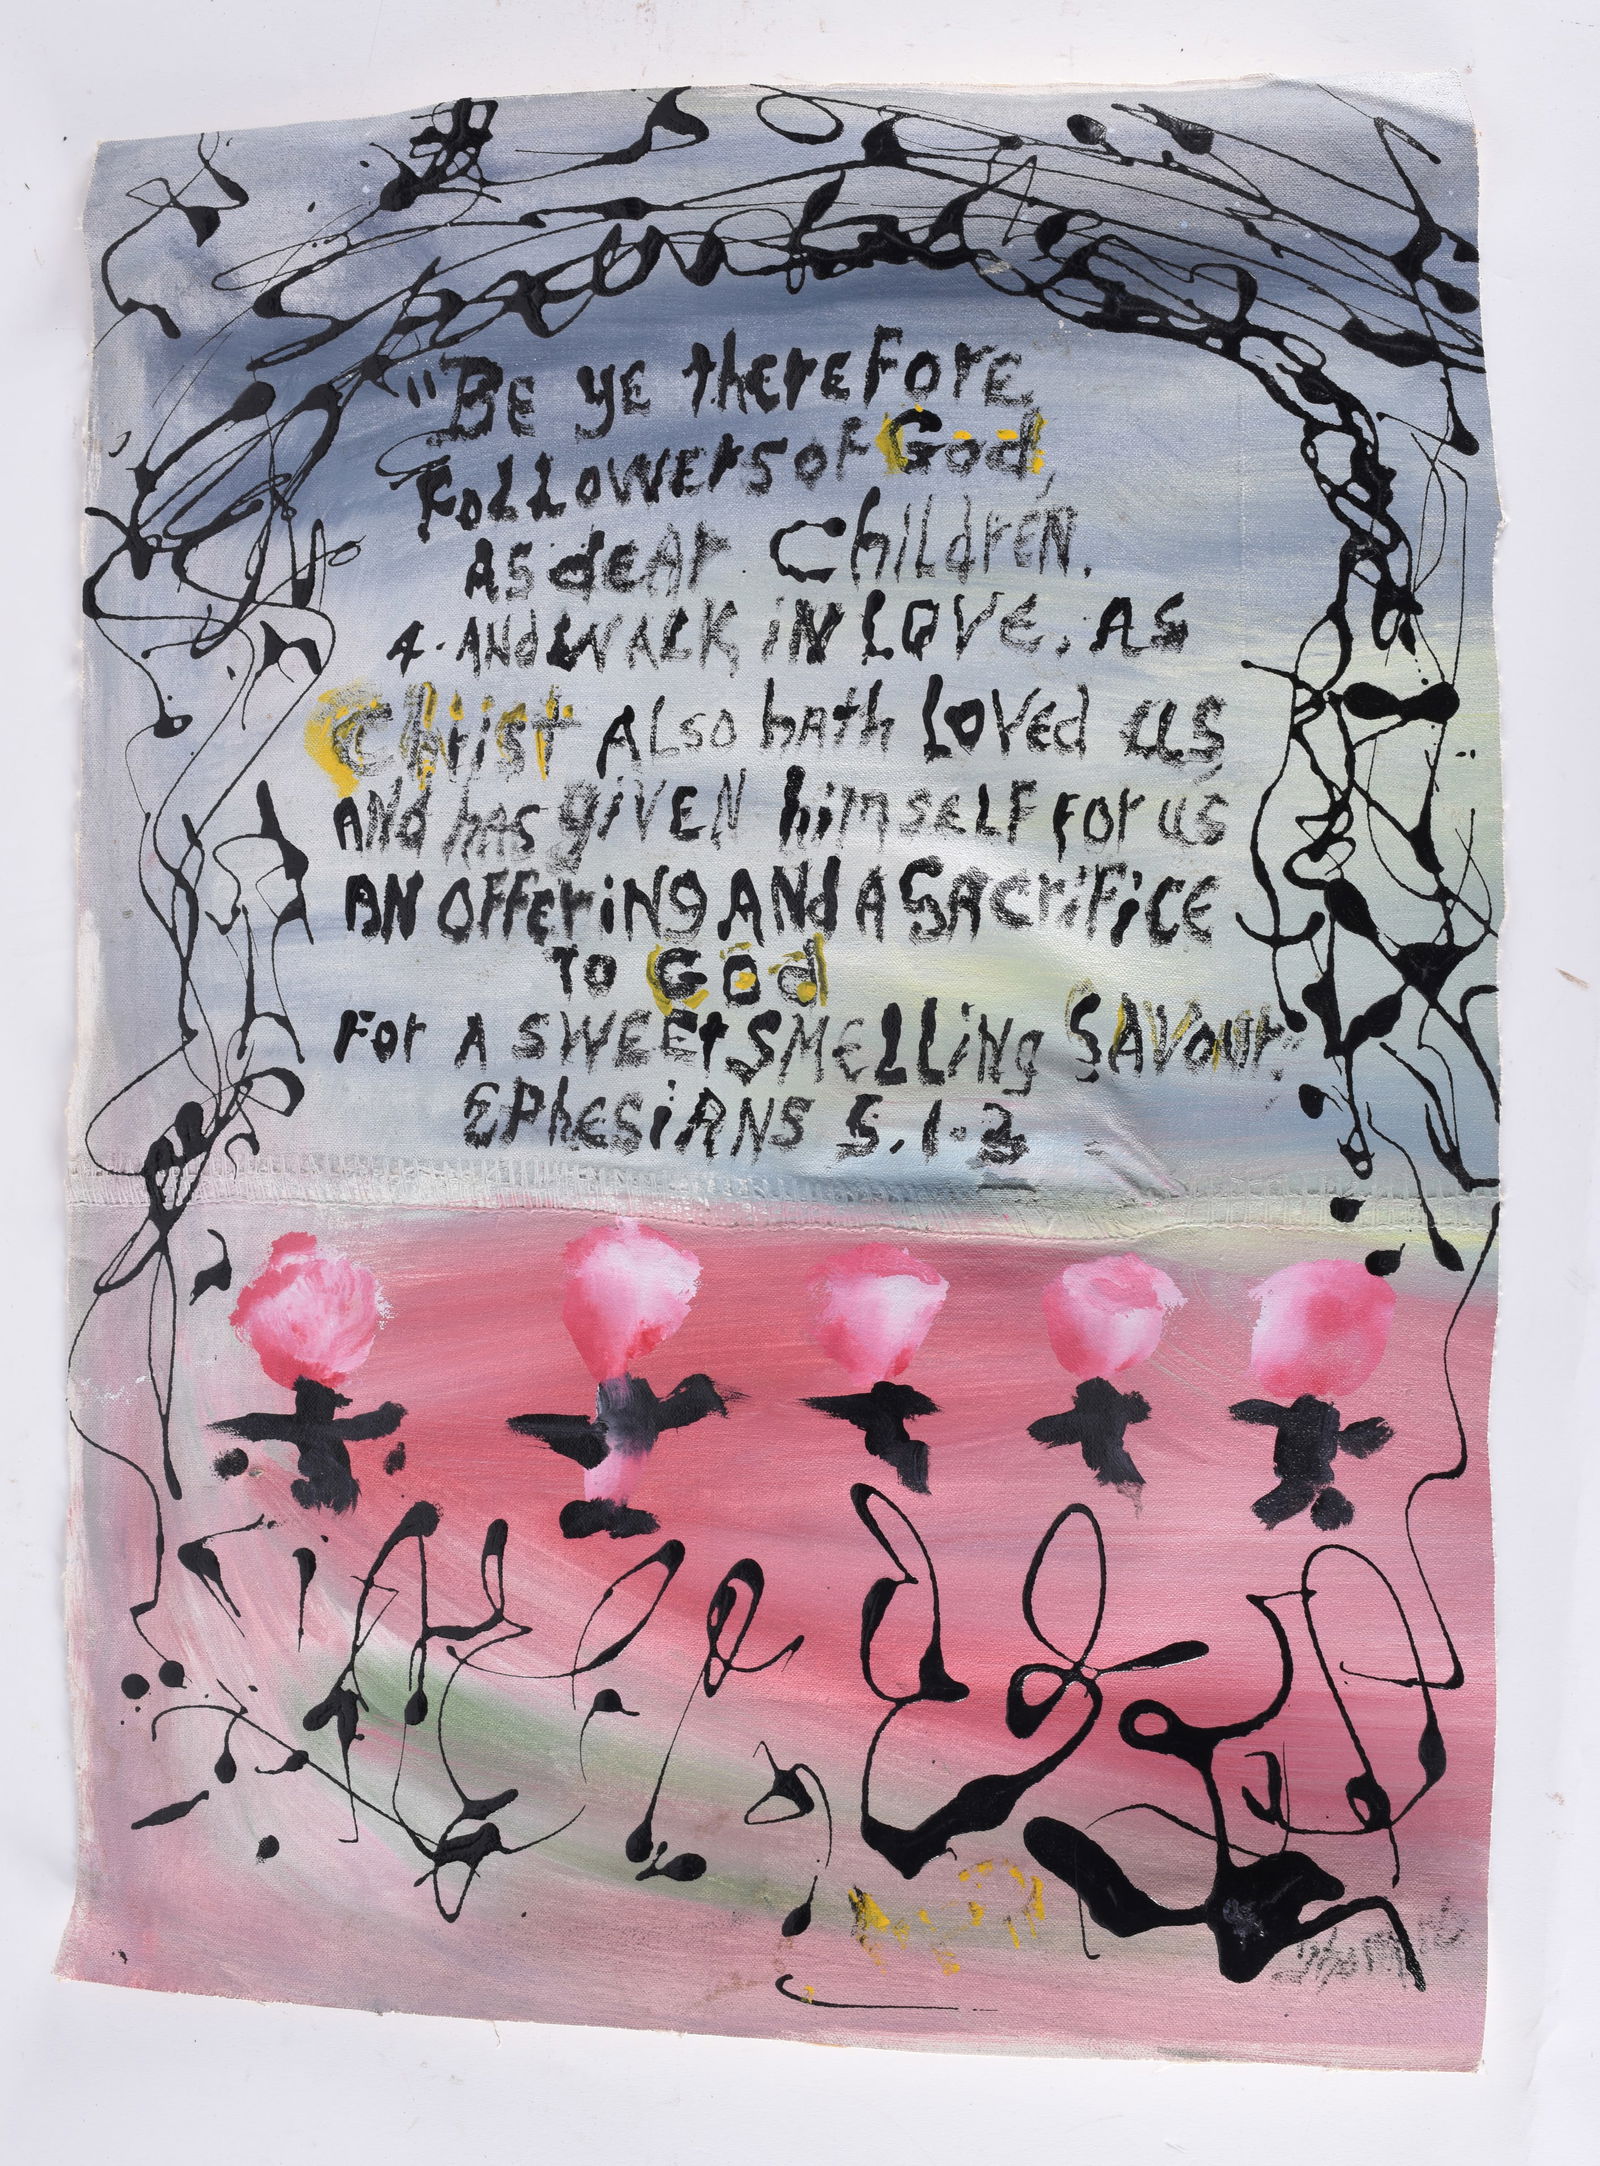 "BE ye therEForE
FoLLOWErS OF God,
AS dEAr ChiLdrEN.
4. ANd WALK iN LOVE. AS
Christ ALso hath LOVEd US
ANd has giVEN himSELF For us
AN OFFEriNg ANd A SAcriFiCE
TO GOd
For A SWEEt SMELLiNg SAVour."
EPhESiANS 5.1-3